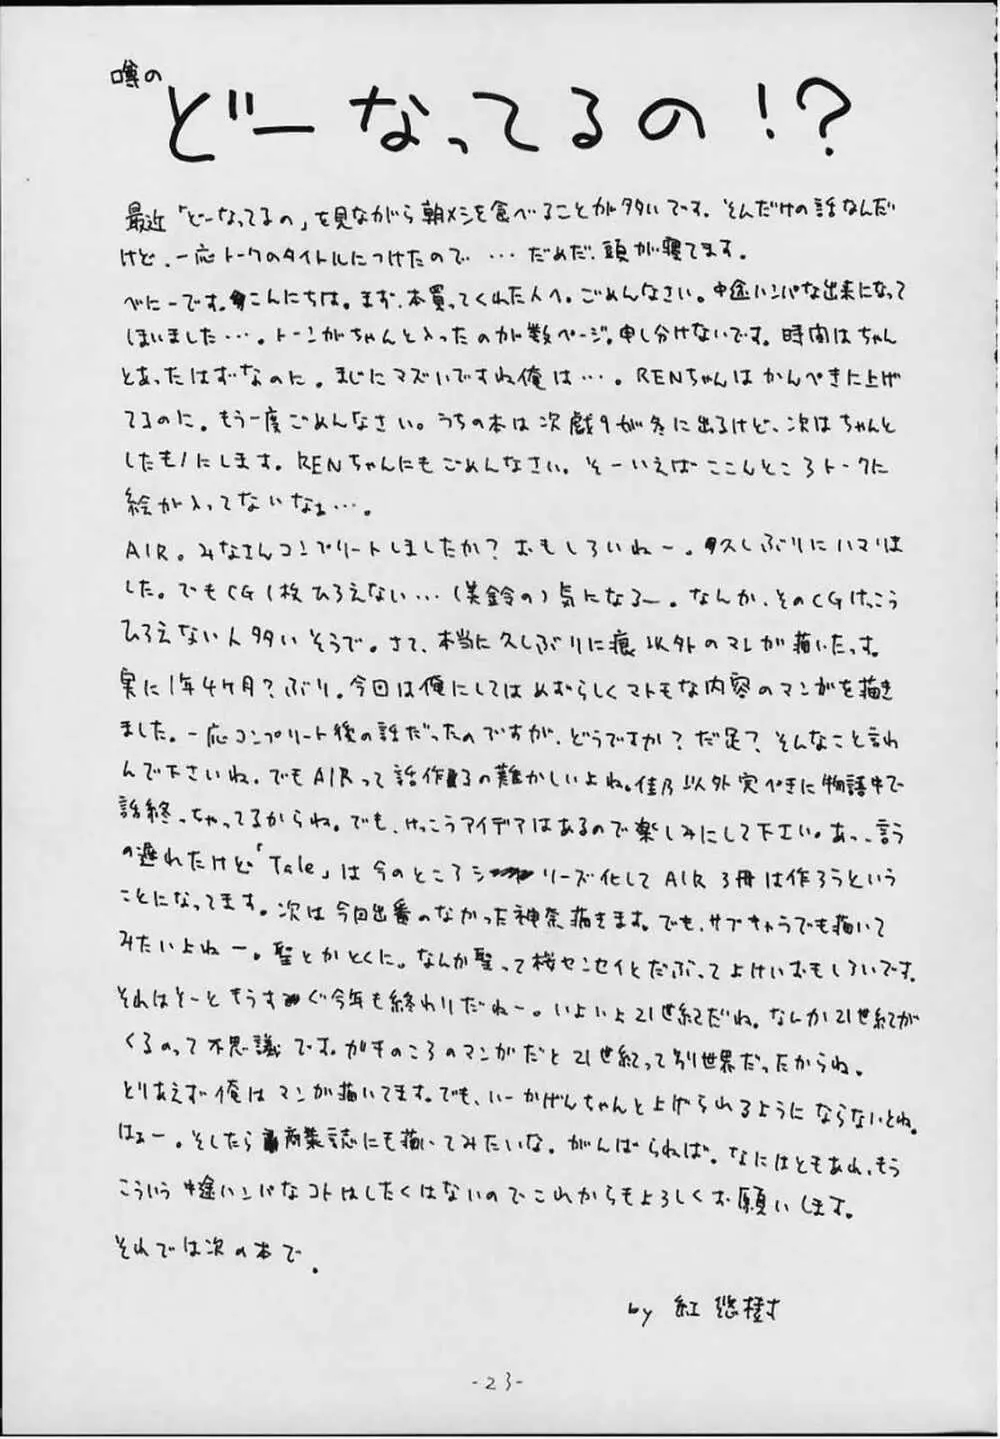 噂の
どーなってるの!?
最近「どーなってるの」を見ながら朝メシを食べることが多いです。そんだけの話なんだ
けど、一応トークのタイトルにつけたので…だめだ、頭が寝てます。
べにーです。こんにちは。まず、本買ってくれた人へ。ごめんなさい。中途ハンパな出来になって
しまいました…。トーンがちゃんと入ったのが数ページ。申し分けないです。時間はちゃん
とあったはずなのに。まじにマズいですね俺は…。RENちゃんはかんぺきに上げ
てるのに。もう一度ごめんなさい。うちの本は次戯9が冬に出るけど、次はちゃんと
したものにします。RENちゃんにもごめんなさい。そーいえばここんところトークに
絵が入ってないなぁ…。
AIR。みなさんコンプリートしましたか?おもしろいねー。久しぶりにハマりま
した。でもCG1枚ひろえない…(美鈴の)気になるー。なんか、そのCGけっこう
ひろえない人多いそうで。さて、本当に久しぶりに痕以外のマンガ描いたっす。
実に1年4ヶ月?ぶり。今回は俺にしてはめずらしくマトモな内容のマンガを描き
ました。一応コンプリート後の話だったのですが、どうですか?だ足?そんなこと言わ
んで下さいね。でもAIRって話作るの難かしいよね。佳乃以外完ぺきに物語中で
話終っちゃってるからね。でも、けっこうアイデアはあるので楽しみにして下さい。あっ、言う
の遅れたけど「Tale」は今のところシリーズ化してAIR3冊は作ろうという
ことになってます。次は今回出番のなかった神奈描きます。でも、サブキャラでも描いて
みたいよねー。聖とかとくに。なんか聖って桜センセイとだぶってよけいおもしろいです。
それはそーともうすぐ今年も終わりだねー。いよいよ21世紀だね。なんか21世紀が
くるのって不思議です。ガキのころのマンガだと21世紀って別世界だったからね。
とりあえず俺はマンガ描いてます。でも、いーかげんちゃんと上げられるようにならないとね。
はぁー。そしたら商業誌にも描いてみたいな。がんばられば。なにはともあれ、もう
こういう中途ハンパなコトはしたくはないのでこれからもよろしくお願いします。
それでは次の本で。
by 紅悠樹
-23-